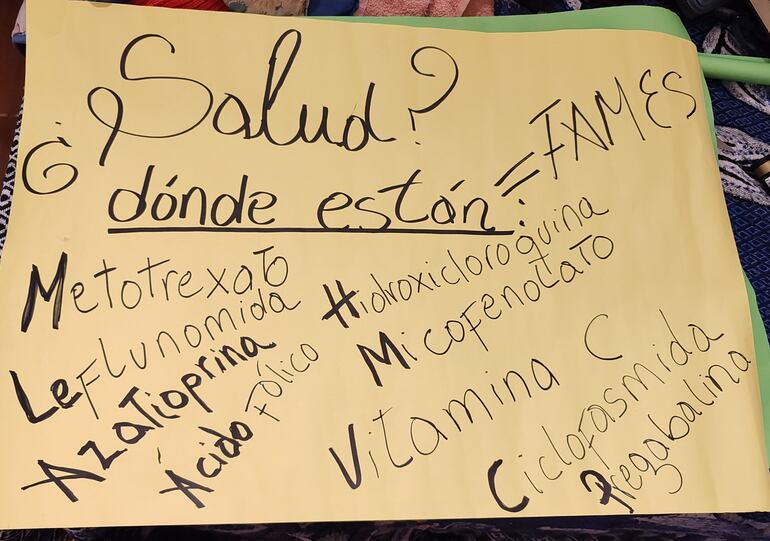 ¿Salud?
¿dónde están: = FAMES
Metotrexato
Leflunomida
Azatioprina
Ácido Fólico
Hidroxicloroquina
Micofenolato
Vitamina C
Ciclofasmida
Pregabalina